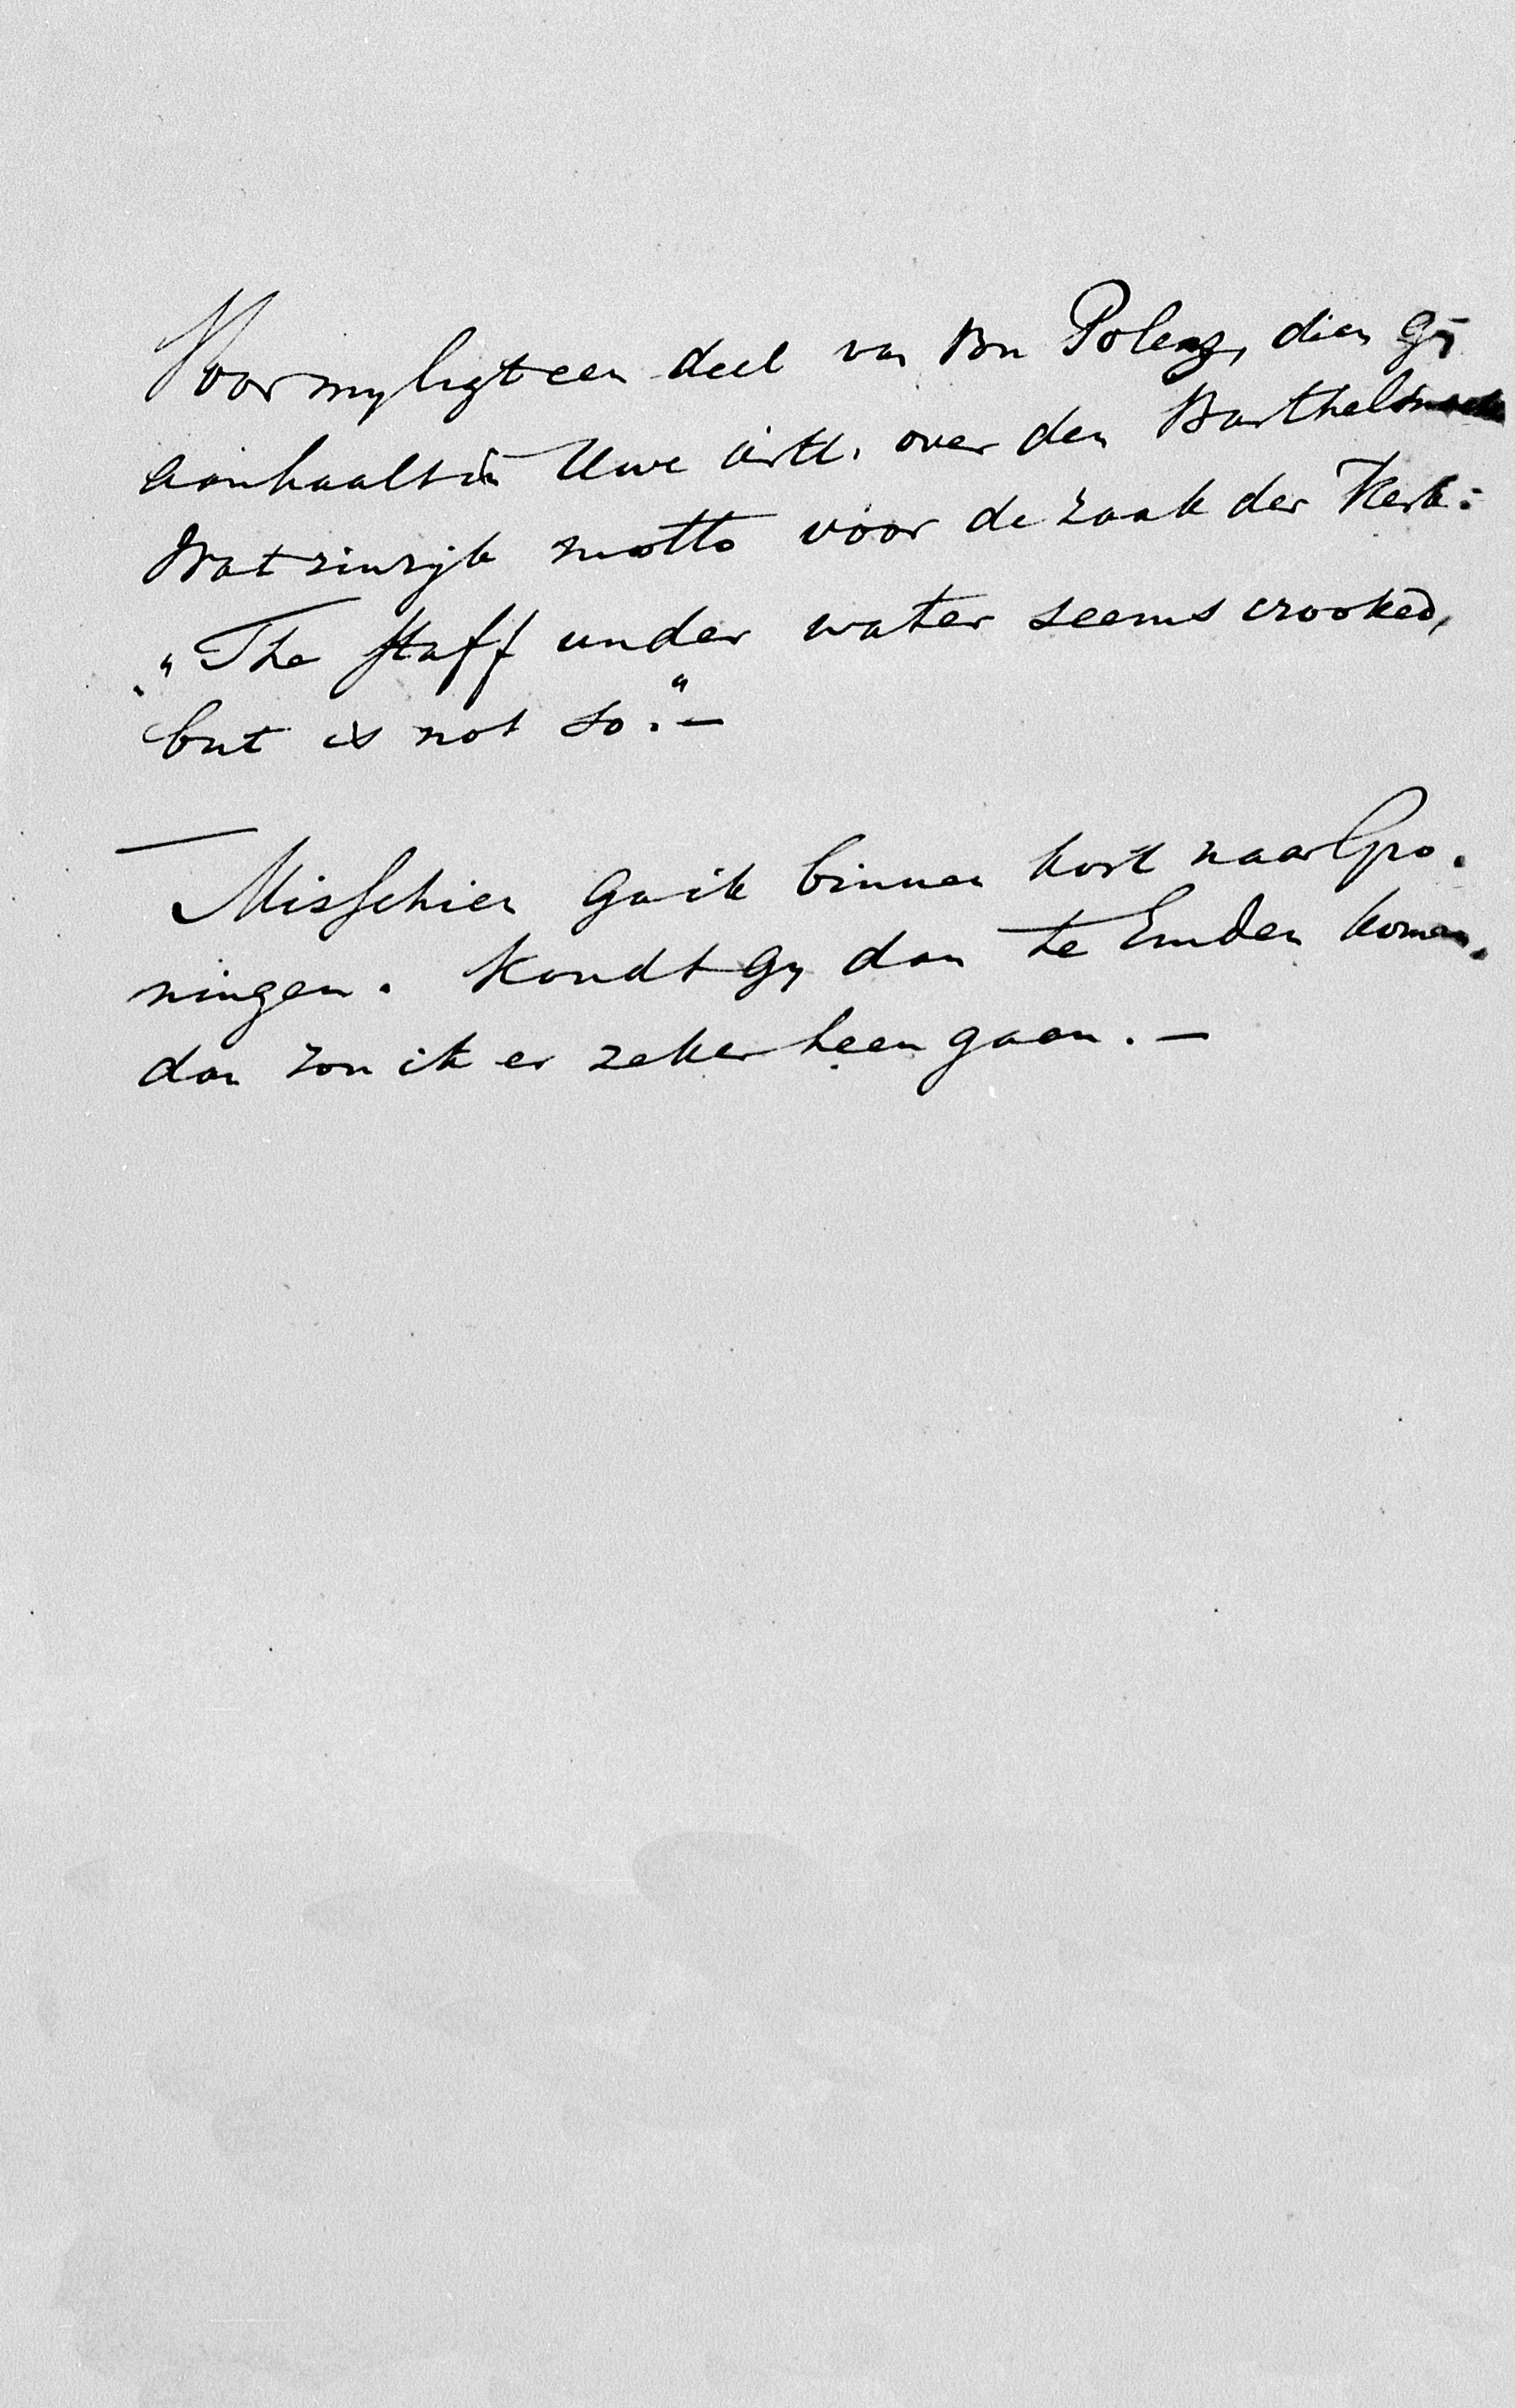 Voor my ligt een deel van Bn Polenz, dien Gij
aanhaalt in Uwe artt. over den
Wat zinrijk motto voor de zaak der Kerk:
„The staff under water seems crooked,
but is not so.” —
— Misschien ga ik binnen kort naar Gro-
ningen. Kondt Gy dan te Emden komen,
dan zou ik er zeker heen gaan. —